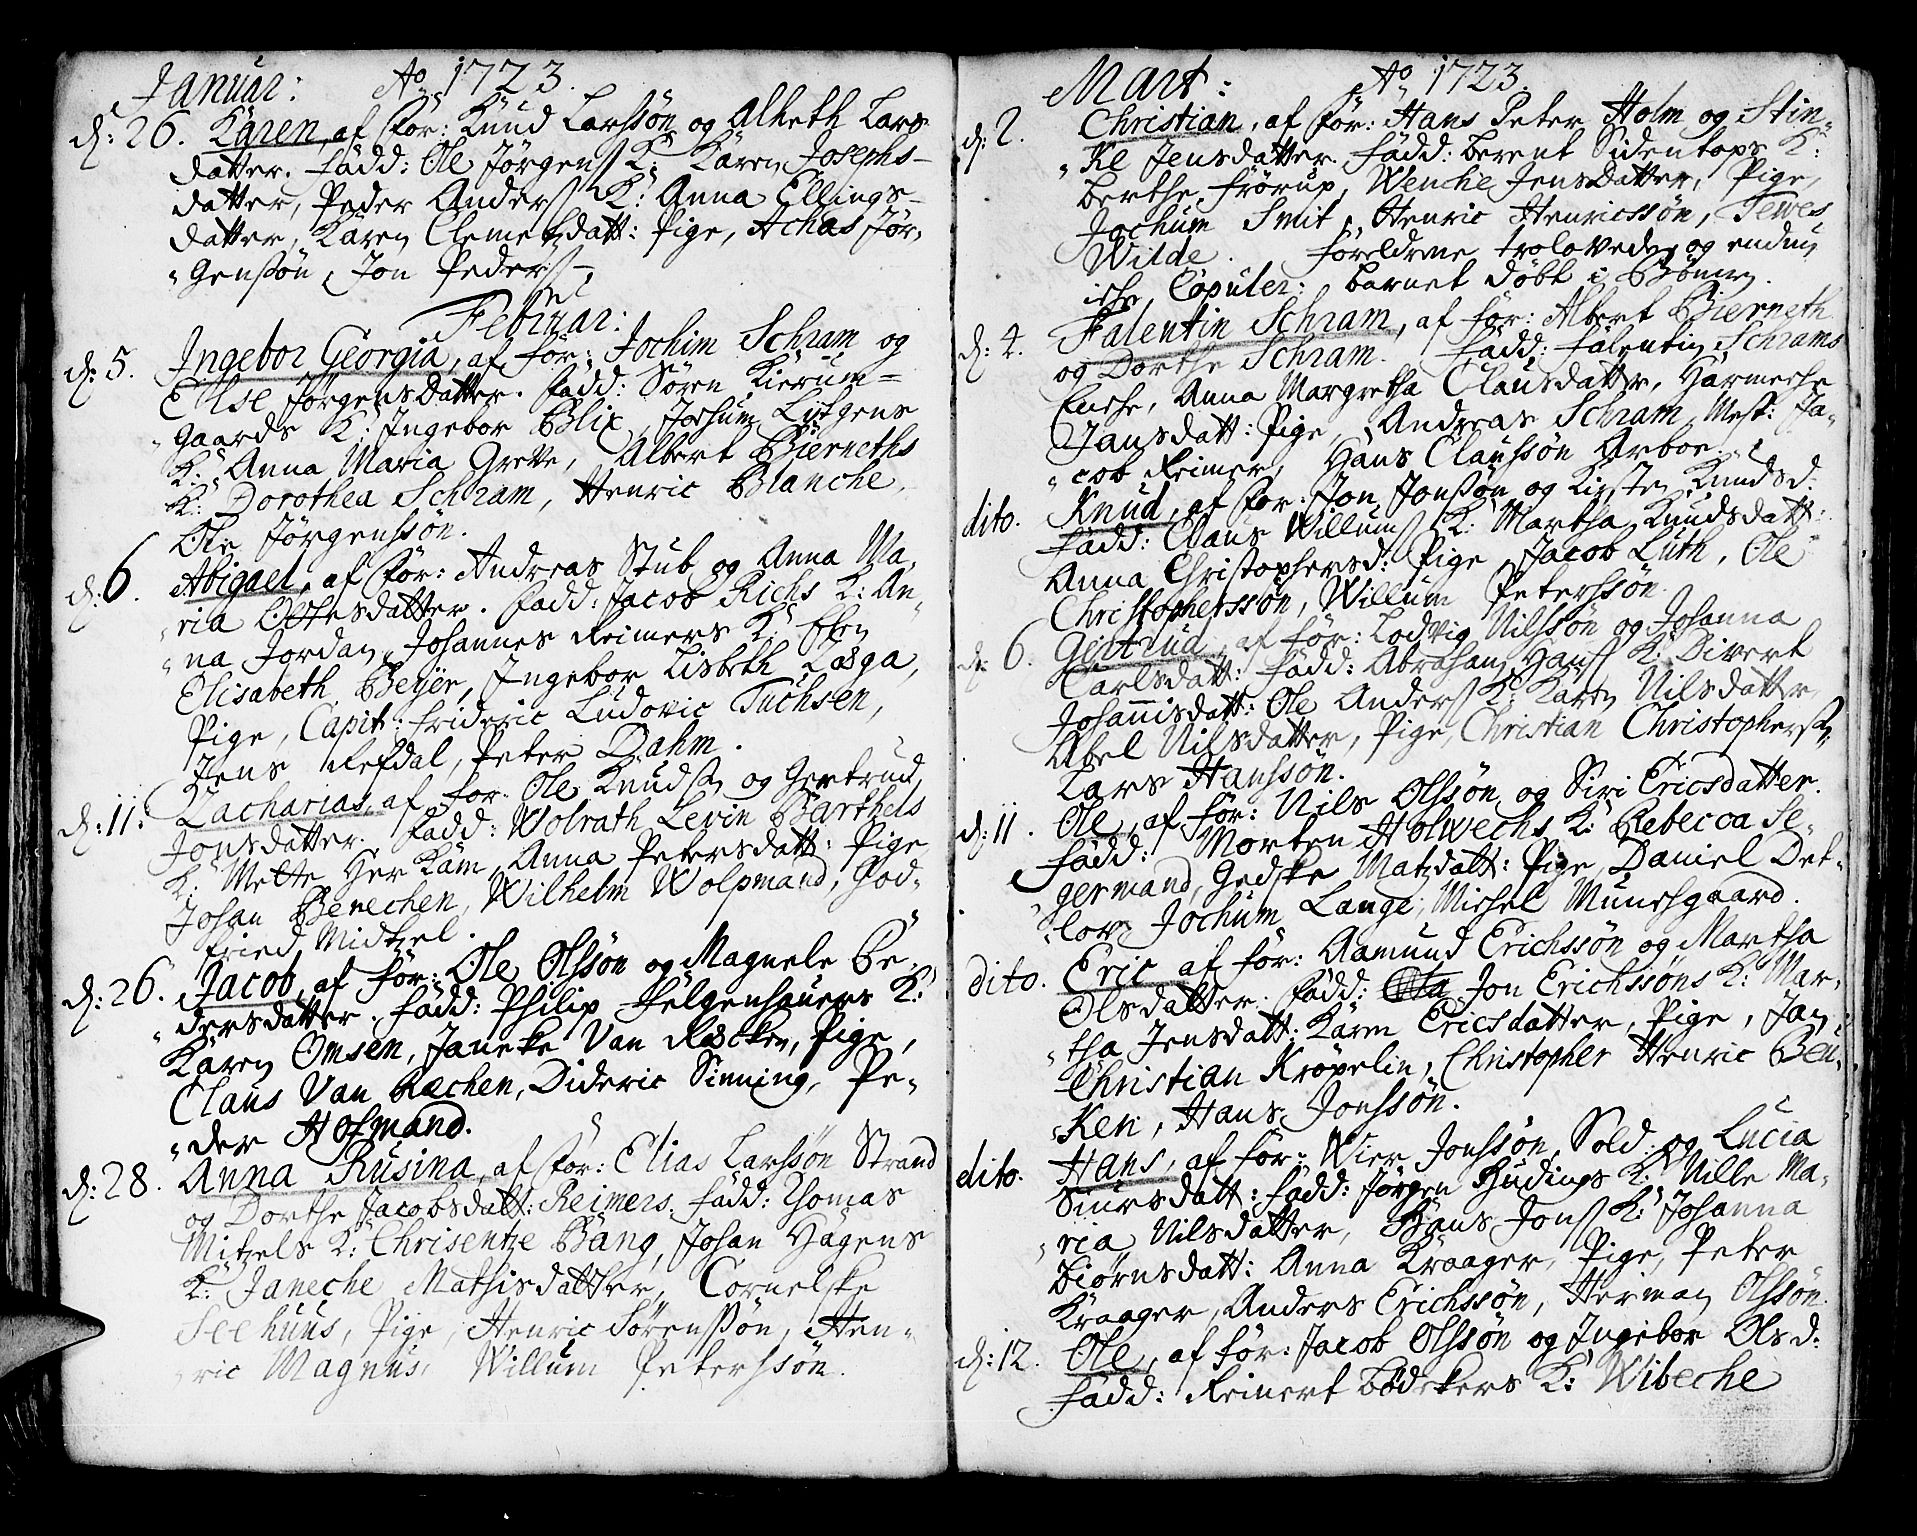 Januar: Ao 1723.
d: 26. Karen, af for: Knud Larssøn og Alheth Lars
datter. Fadd: Ole Jørgens K: Karen Josephs-
datter, Peder Anderss K: Anna Ellings-
datter, Karen Clemetzdatt: Pige, Achas Jør,
"Genssøn, Jon Peders
Februar:
d: 5. Ingebor Georgia, af for: Jochim Schram og
Else Jørgensdatter. Fadd: Søren Kierum=
"Gaards K: Ingebor Blix, Jochum Lutgens
K: Anna Maria Greve, Albert Bierneths
K: Dorothea Schram, Henric Blanche,
Ole Jørgenssøn.
d: 6. Abigael, af for: Andreas Stub og Anna Ma,
"ria Ottesdatter. Fadd: Jacob Richs K: An,
"na Jordan, Johannes Reimers K:
Elisabeth Beyer, Ingebor Lisbeth
Pige, Capit: Frideric Ludovic Tuchsen,
Jens Refdal, Peter Dahm.
d: 11: Zacharias, af for: Ole Knuds og Gertrud
Jonsdatter. Fadd: Wolrath Levin Barthels
K: Mette Her Kam, Anna Petersdatt: Pige
Johan Benechen, Wilhelm Wolpmand, God-
fried Mitzel.
d: 26. Jacob, af for: Ole Olssøn og Magnele Pe,
"dersdatter. Fadd: Philip Helgenhauers K:
Karen Omsen, Janeke Van Recken, Pige,
Claus Van Rechen, Dideric Sinning, Pe,
"der Hofmand.
d: 28. Anna Rusina, af for: Elias Larssøn Strand
og Dorthe Jacobsdatt: Reimers. Fadd: Thomas
Mitzels K: Chrisentze Bang, Johan Hagens
K: Janeche Mathisdatter, Cornelske
Seehuus, Pige, Henric Sørenssøn, Hen,
"ric Magnus, Willum Peterssøn.
Mart: Ao 1723.
d: 2. Christian, af for: Hans Peter Holm og Stin,
"Ke Jensdatter. Fadd: Berent Sidentops K:
Berthe Frørup, Wenche Jensdatter, Pige,
Jochum Smit, Henric Henricssøn, Tewes
Wilde. Foreldrene troloveder og endnu
iche Copuler: barnet døbt i Bønen.
d: 4. Falentin Schram, af for: Albert Bierneth
og Dorthe Schram. Fadd: Falentin Schrams
Enche, Anna Margretha Clausdatter, Harmeche
Jansdatt: Pige, Andreas Schram, Mest: Ja-
"cob Reimer, Hans Claussøn Arboe.
dito. Knud, af for: Jon Jonssøn og Kirsten Knudsd:
Fadd: Claus Willums K: Martha Knudsdatt:
Anna Christophersd: Pige, Jacob Luth, Ole
Christopherssøn, Willum Peterssøn.
d: 6. Gertrud, af for: Lodvig Nilssøn og Johanna
Carlsdatt: Fadd: Abraham Hans K: Divert
Johannisdatt: Ole Anders K: Karen Nilsdatter
Abel Nilsdatter, Pige, Christian Christophers
Lars Hanssøn.
d: 11. Ole, af for: Nils Olssøn og Siri Ericsdatter.
Fadd: Morten Holwechs K: Rebecca Se,
"germand, Gedske Matzdatt: Pige, Daniel Det-
"lov, Jochum Lange, Michel Munchgaard.
dito. Eric af for: Aamund Erichssøn og Martha
Olsdatter. Fadd: Jon Erichssøns K: Mar,
"tha Jensdatt: Karen Ericsdatter, Pige, Jan
Christian Krøpelin, Christopher Henric Beu,
"Ken, Hans Jonssøn.
dito. Hans, af for: Wier Jonssøn, Sold: og Lucia
Siursdatt: Fadd: Jørgen Rudings K: Nille Ma,
"ria Nilsdatter, Hans Jons K: Johanna
Biørnsdatt: Anna Kraager, Pige, Peter
Kraager, Anders Erichssøn, Herman Olssøn.
d: 12. Ole, af for: Jacob Olssøn og Ingebor Olsd:
Fadd: Reinert Bødekers K: Wibeche